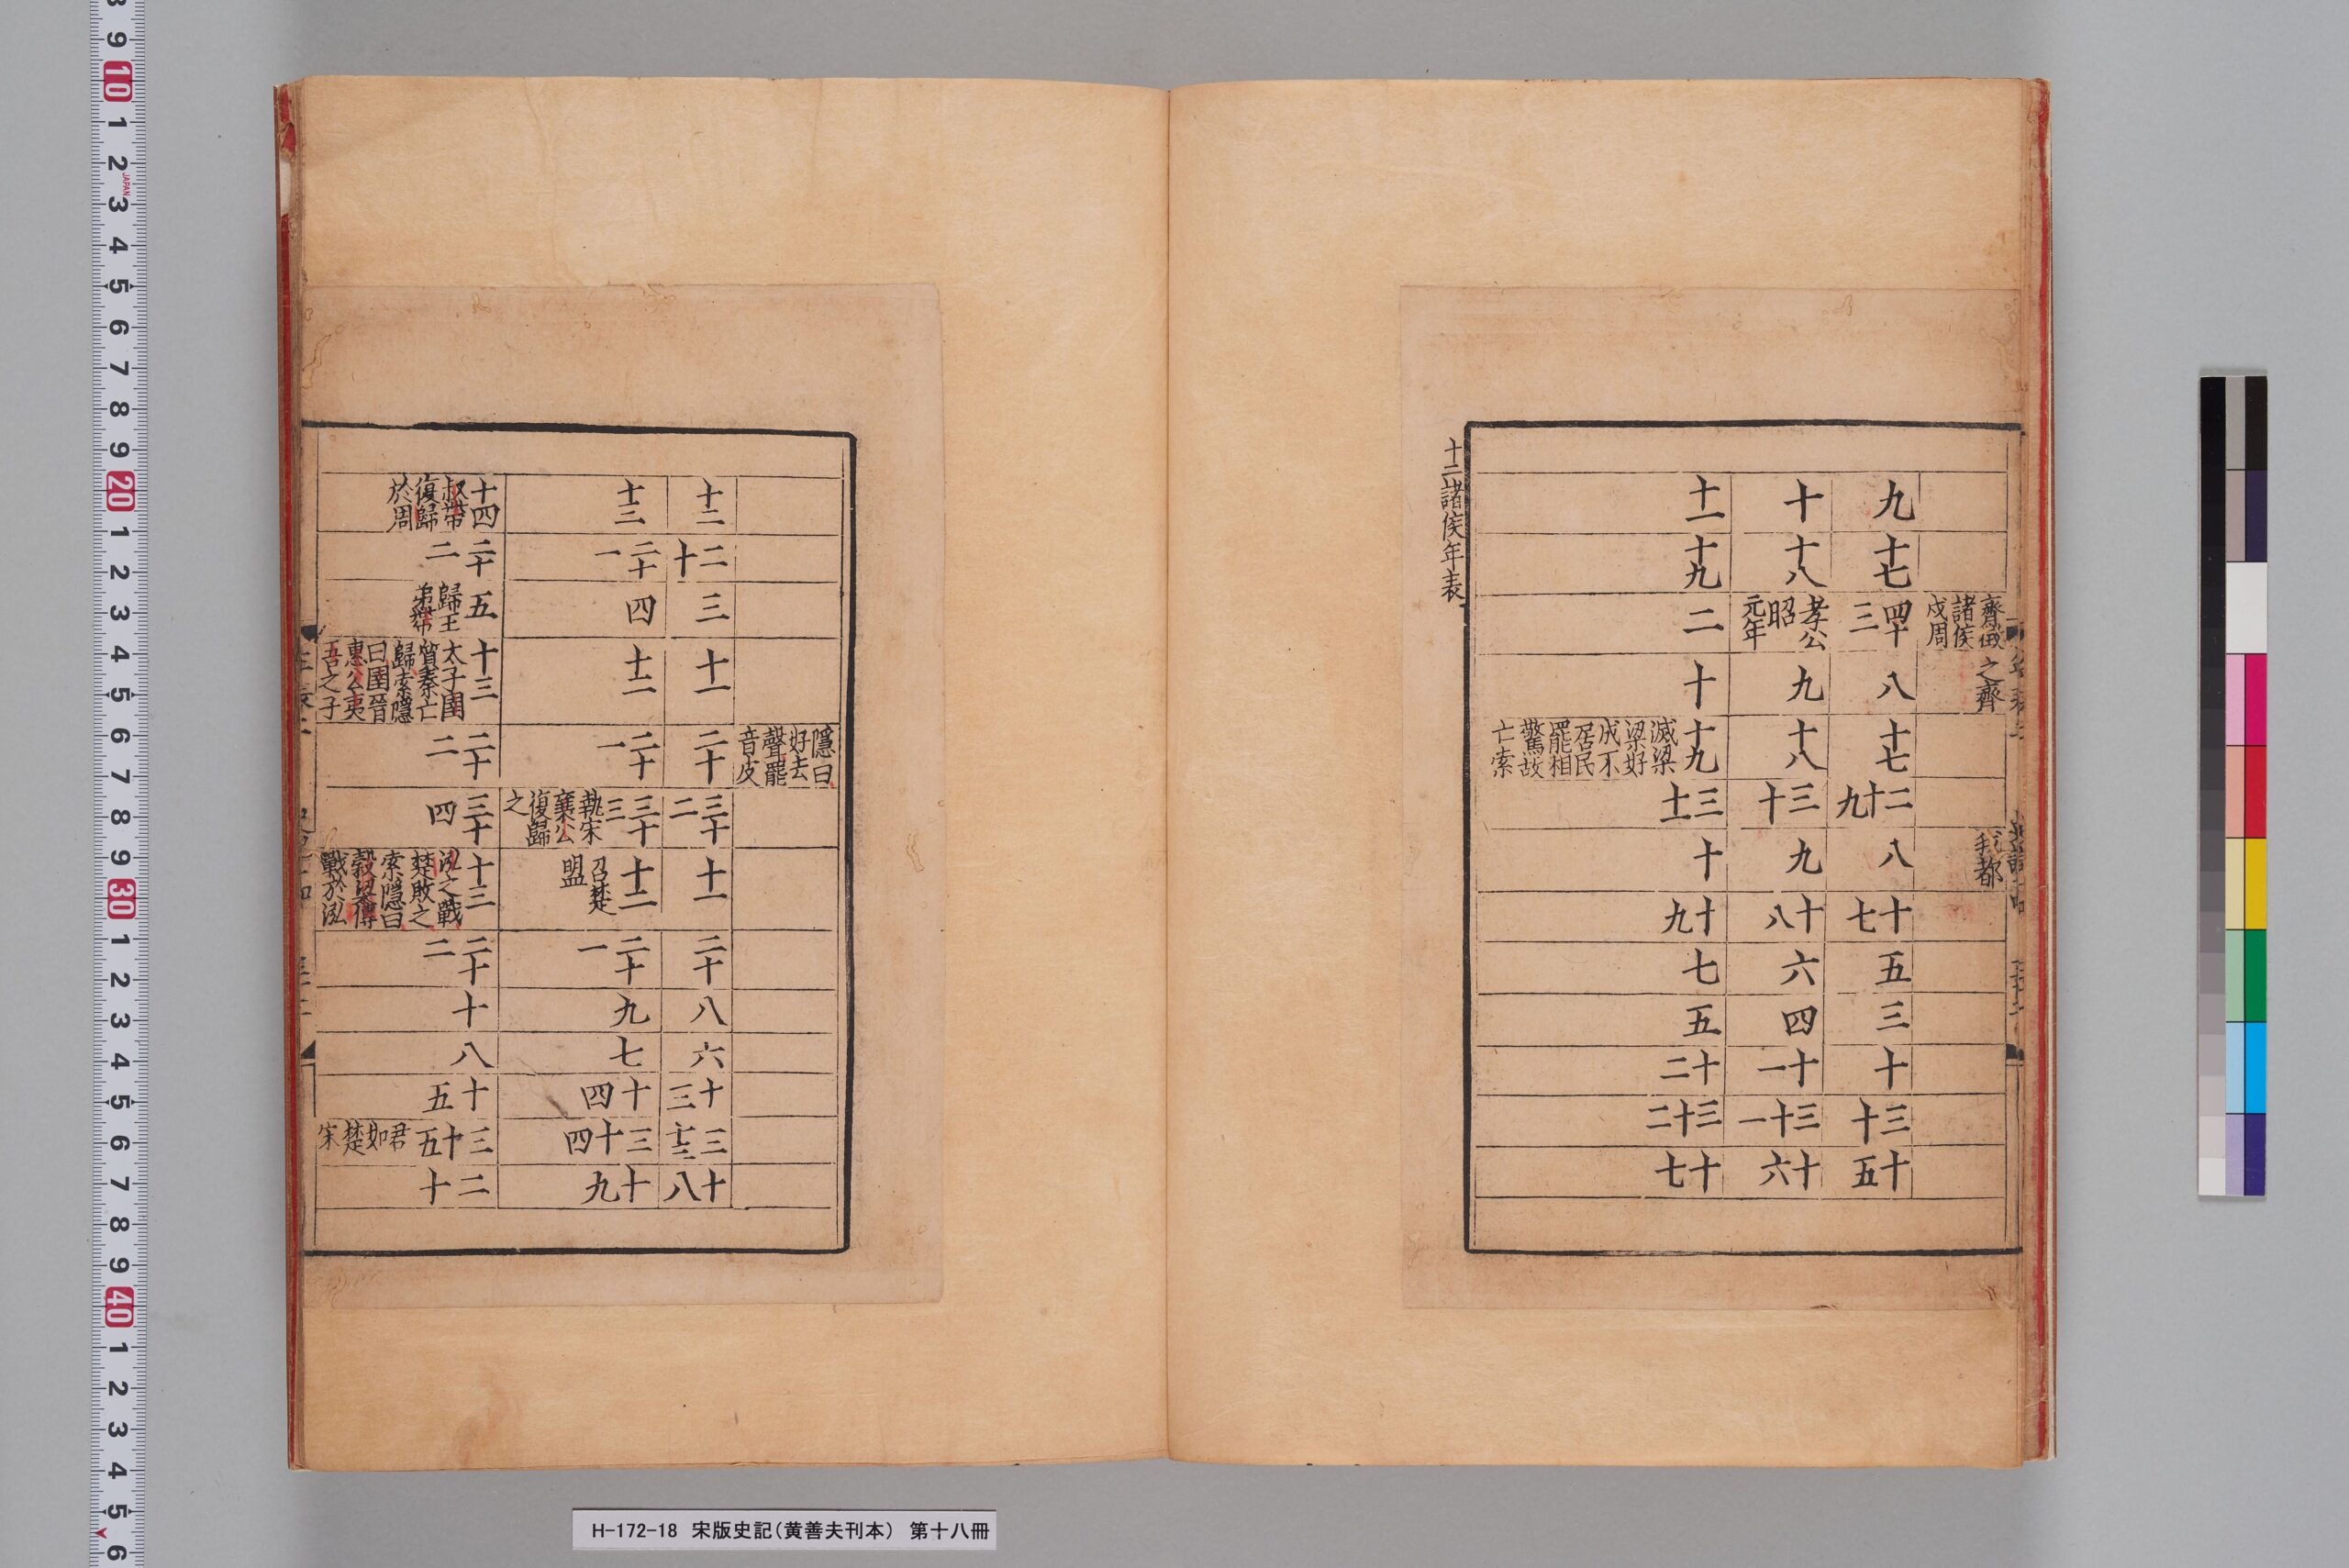 齊徴
諸侯
戍周
之齊
我都
九
十七
四十三
八
十七
二十九
八
十七
五
三
十
三十
十五
十
十八
孝公
昭
元年
九
十八
三十
九
十八
六
四
十一
三十一
十六
十一
十九
二
十
十九
滅梁
梁好
成不
居民
罷相
驚故
亡索
三十一
十
十九
七
五
十二
三十二
十七
十二諸侯年表
隱曰
好去
聲罷
音皮
十二
二十
三
十一
二十
三十二
十一
二十
八
六
十三
三十三
十八
十三
二十一
四
十二
二十一
三十三
執宋
襄公
復歸
之
十二
召楚
盟
二十一
九
七
十四
三十四
十九
十四
叔帶
復歸
於周
二十二
五
歸王
弟帶
十三
太子圉
質秦亡
歸索隱
曰圉晉
惠公夷
吾之子
二十二
三十四
十三
泓之戰
楚敗之
索隱曰
穀梁傳
戰於泓
二十二
十
八
十五
三十五
君如楚宋
二十
H-172-18 宋版史記(黄善夫刊本) 第十八冊